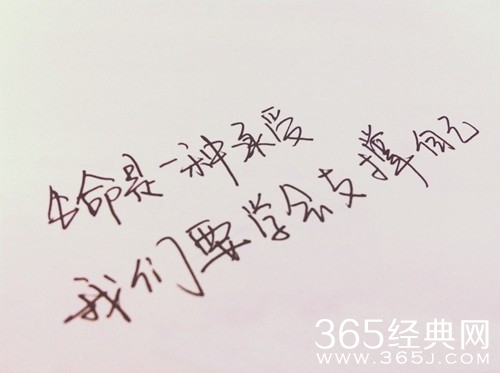 生命是一种承受
我们要学会支撑自己
365经典网
www.365J.com